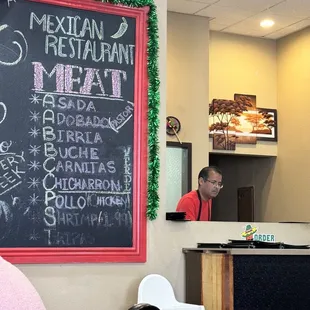 MEXICAN
RESTAURANT
MEAT
*ASADA
*ADOBADO
*BIRRIA
*BUCHE
*CARNITAS
*CHICHARRON
*POLLO CHICKEN
*SHRIMP
*TRIPAS
ORDER